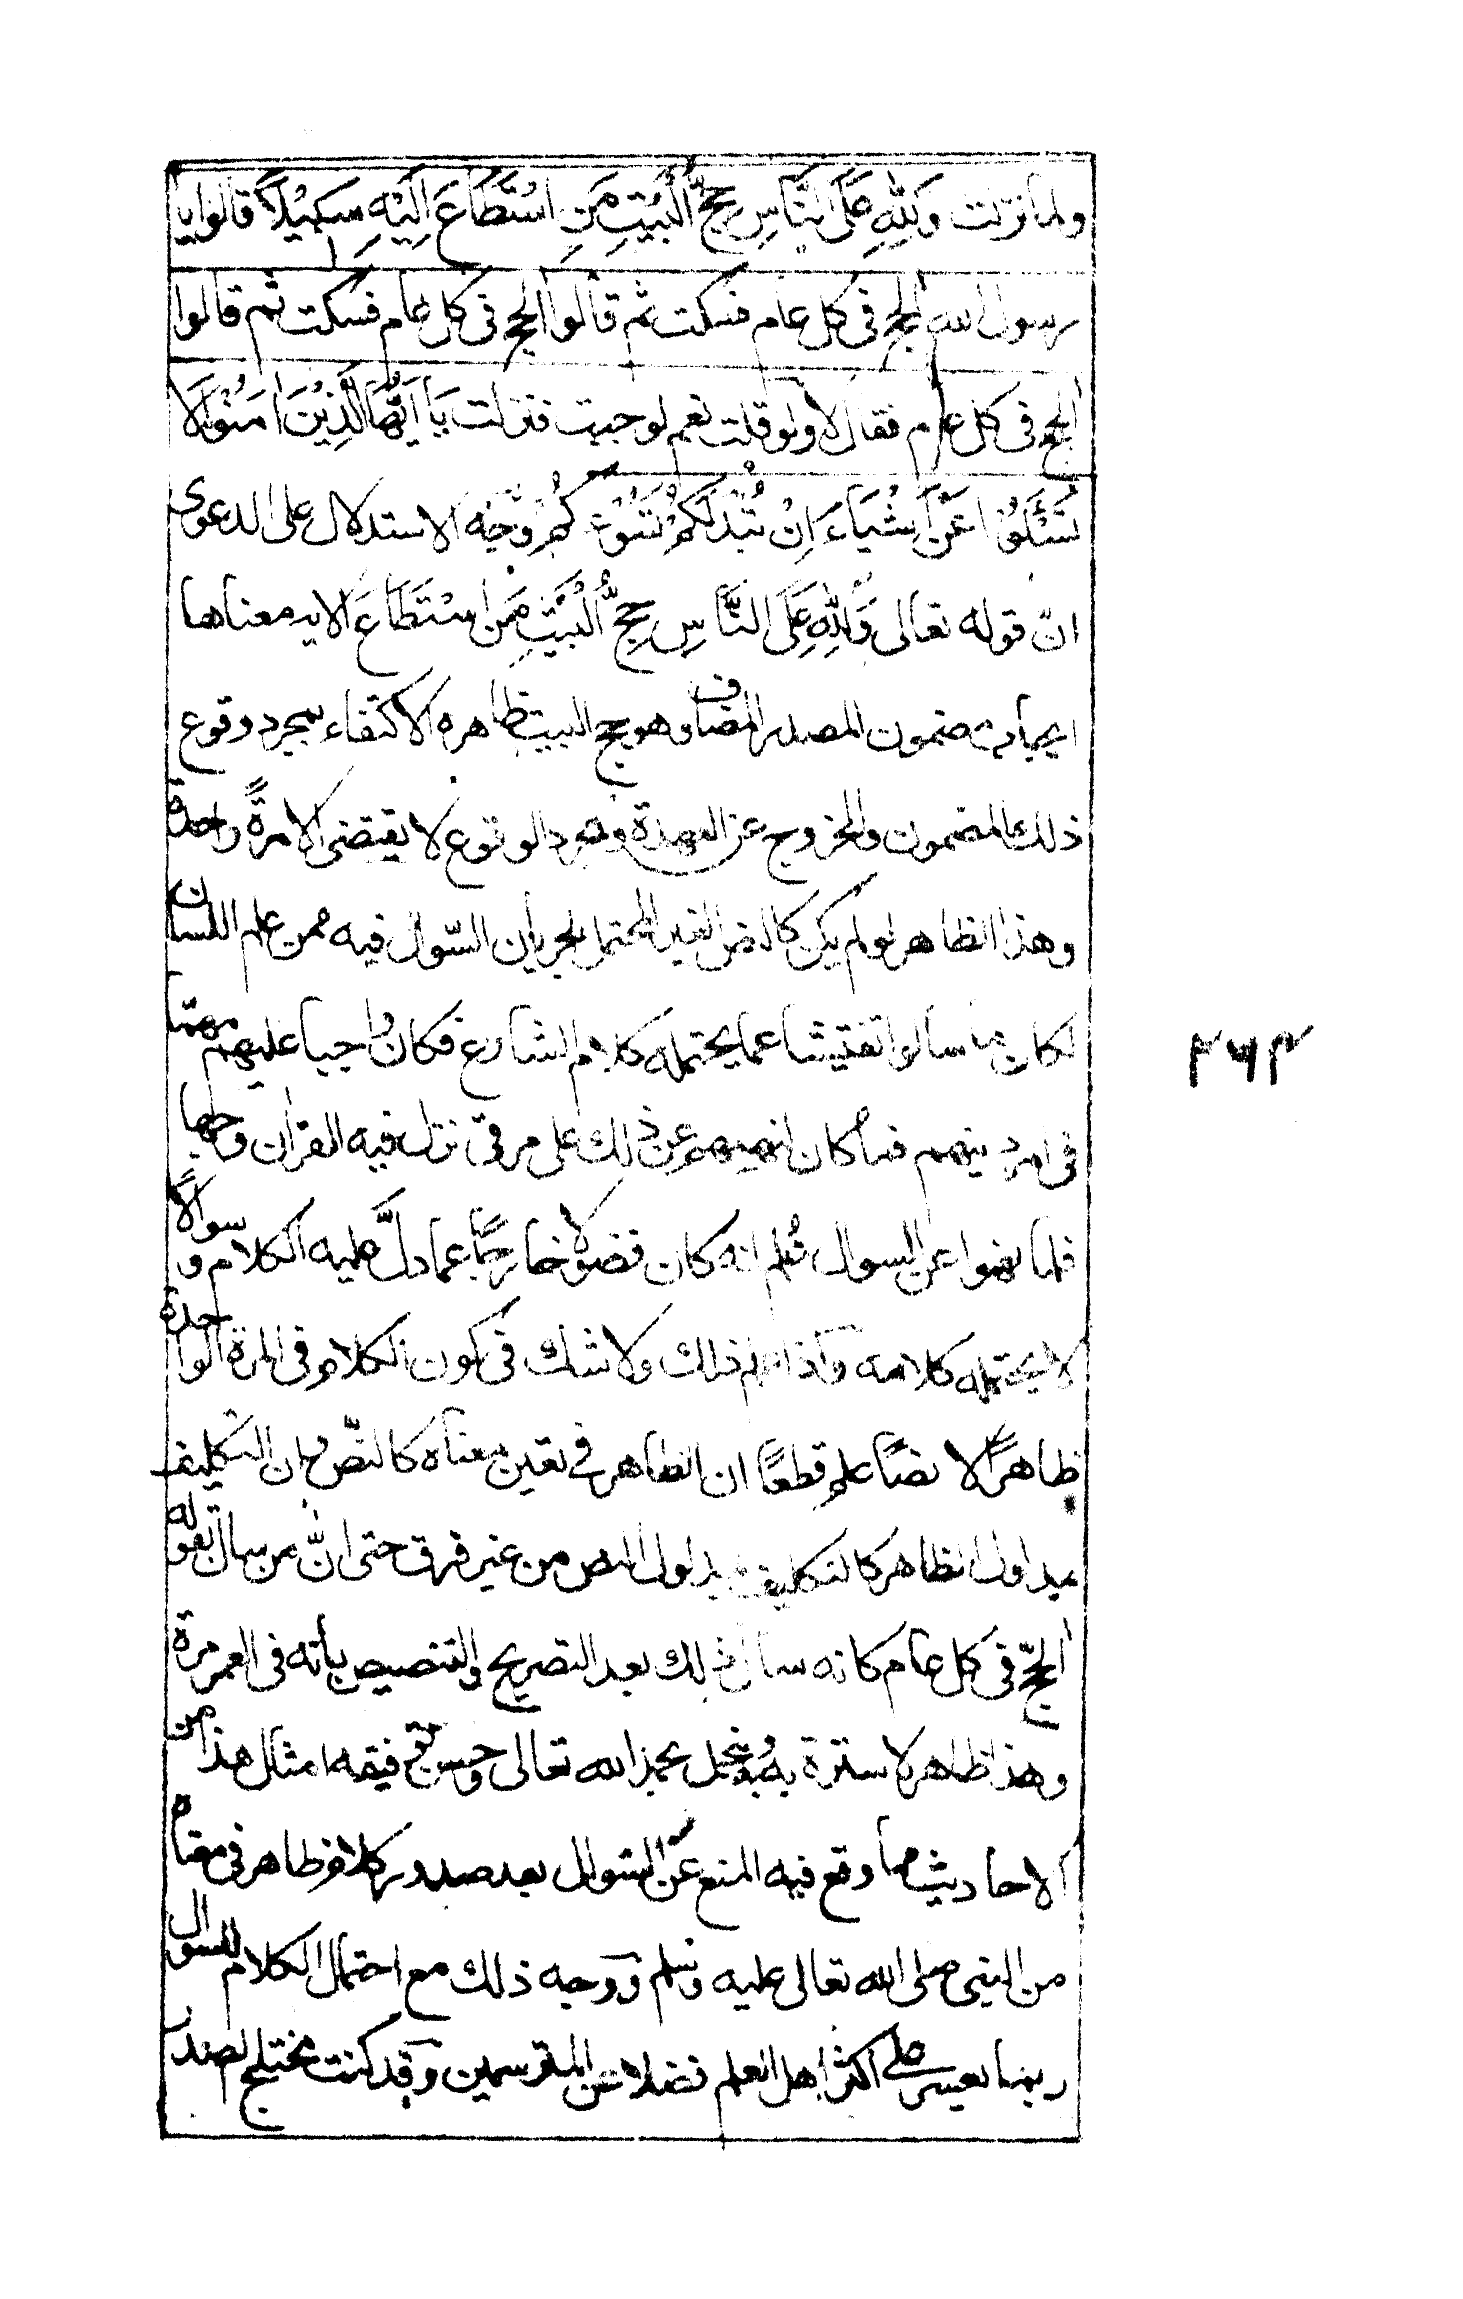 ولما نزلت وَلِلّٰهِ عَلَى النَّاسِ حِجُّ الْبَيْتِ مَنِ اسْتَطَاعَ اِلَيْهِ سَبِيْلًا قالوا يا
رسول الله الحج فى كل عام فسكت ثم قالوا الحج فى كل عام فسكت ثم قالوا
الحج فى كل عام فقال لا ولو قلت نعم لوجبت فنزلت يَا اَيُّهَا الَّذِيْنَ اٰمَنُوْا لَا
تَسْئَلُوْا عَنْ اَشْيَاءَ اِنْ تُبْدَ لَكُمْ تَسُؤْكُمْ وَوجْه الاستدلال على الدعوى
ان قوله تعالى وَلِلّٰهِ عَلَى النَّاسِ حِجُّ الْبَيْتِ مَنِ اسْتَطَاعَ الايه معناها
ايجاب مضمون المصدر المضاف وهو حج البيت ظاهره الاكتفاء بمجرد وقوع
ذلك المضمون والخروج عن العهدة ومجرد الوقوع لا يقتضى الا مرةً واحدة
وهذا الظاهر لو لم يكن كالنص الغير المحتمل لجريان السّوال فيه ممن علم اللسان
لكان ما سالوا تفتيشا عما يحتمله كلام الشارع فكان واجبا عليهم مهمّا
فى امر دينهم فما كان لنهيهم عن ذلك على مر فى نزل فيه القرآن وجها
فلما نهوا عن السوال عُلم انه كان فضولًا خارجًا عما دلَّ عليه الكلام و سوالًا
لا يحتمله كلامه وَاذا علم ذلك ولا شك فى كون الكلام فى المرة الواحدة
ظاهرًا لا نصًا علم قطعًا ان الظاهر فى تعين معناه كالنصّ وان التكليف
بمدلول الظاهر كالتكليف بمدلول النص من غير فرق حتى انّ من سال بقوله
الحجّ فى كل عام كانه سال ذلك بعد التصريح والتنصيص بانه فى العمر مرة
وهذا ظاهر لا سترة به وينحل بحمد الله تعالى وحسن توفيقه امثال هذا من
الاحاديث مما وقع فيه المنع عَن السّوال بعد صدور كلام ظاهر فى معناه
من النبى صلى الله تعالى عليه وسلم وَوجه ذلك مع احتمال الكلام للسوال
ربما يعسر على اكثر اهل العلم فضلا عن المتوسمين وَقد كنت مختلج الصدر
۲۶۳